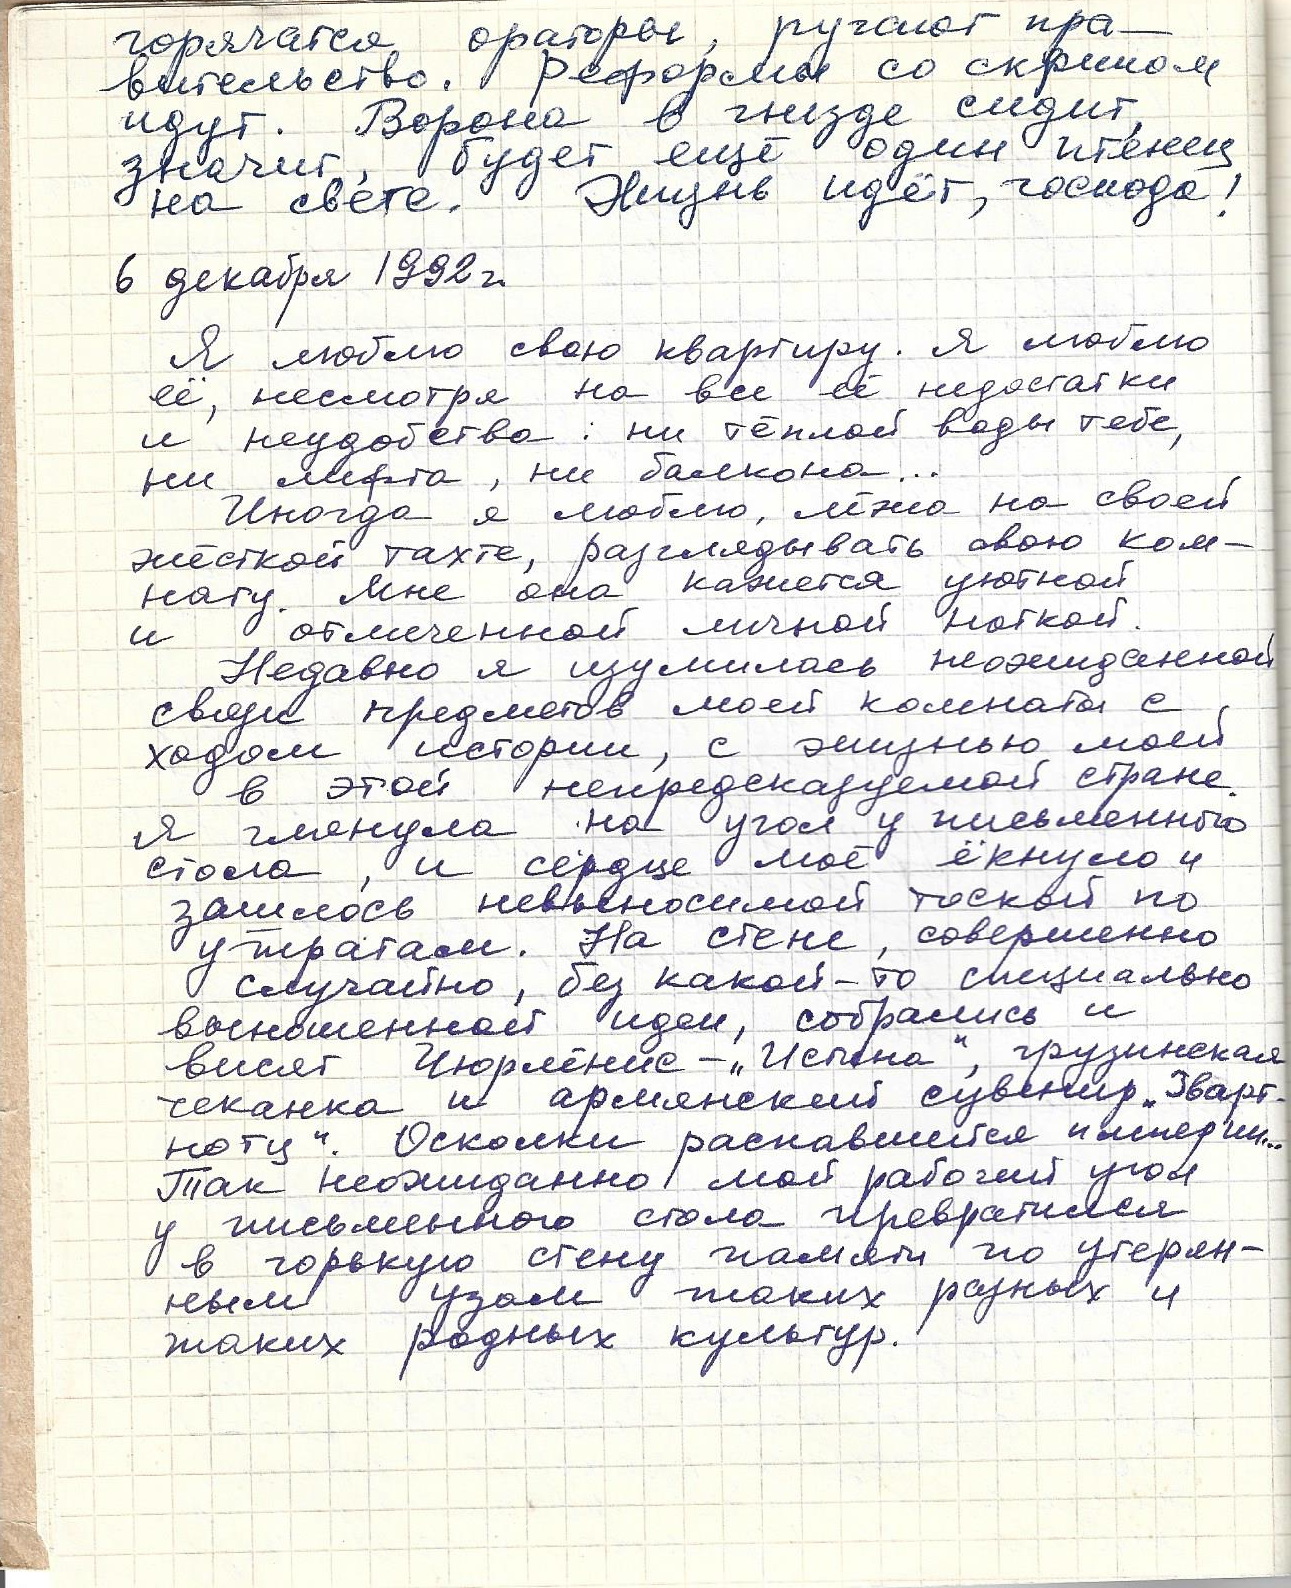 горячатся ораторы, ругают пра-
вительство. Реформы со скрипом
идут. Ворона в гнезде сидит,
значит, будет ещё один птенец
на свете. Жизнь идёт, господа!
6 декабря 1992 г.
Я люблю свою квартиру. Я люблю
её, несмотря на все её недостатки
и неудобства: ни тёплой воды тебе,
ни лифта, ни балкона...
Иногда я люблю, лёжа на своей
жёсткой тахте, разглядывать свою ком-
нату. Мне она кажется уютной
и отмеченной личной ноткой.
Недавно я изумилась неожиданной
связи предметов моей комнаты с
ходом истории, с жизнью моей
в этой непредсказуемой стране.
Я глянула на угол у письменного
стола, и сердце моё ёкнуло и
зашлось невыносимой тоской по
утратам. На стене, совершенно
случайно, без какой-то специально
выношенной идеи, собрались и
висят Чюрлёнис - „Истина“, грузинская
чеканка и армянский сувенир „Зварт-
ноту“. Осколки распавшейся империи...
Так неожиданно мой рабочий угол
у письменного стола превратился
в горькую стену памяти по утерян-
ным узам таких разных и
таких родных культур.